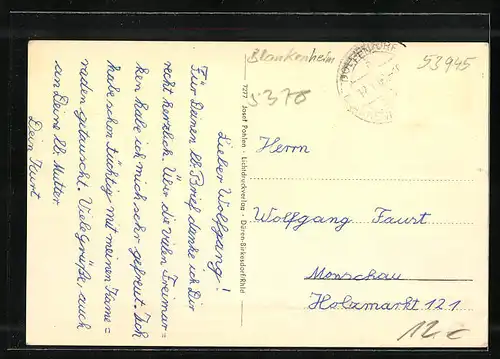 Blankenheim
53945
5378
Lieber Wolfgang!
Für Deinen lb. Brief danke ich Dir
recht herzlich. Über die vielen Freimar=
ken habe ich mich sehr gefreut. Ich
habe schon tüchtig mit meinen Kame=
raden getauscht. Viele Grüße, auch
an Deine lb. Mutter
Dein Kurt
7277 Josef Pohlen · Lichtdruckverlag · Düren-Birkesdorf/Rhld
Herrn
Wolfgang Faust
Monschau
Holzmarkt 121
12,-